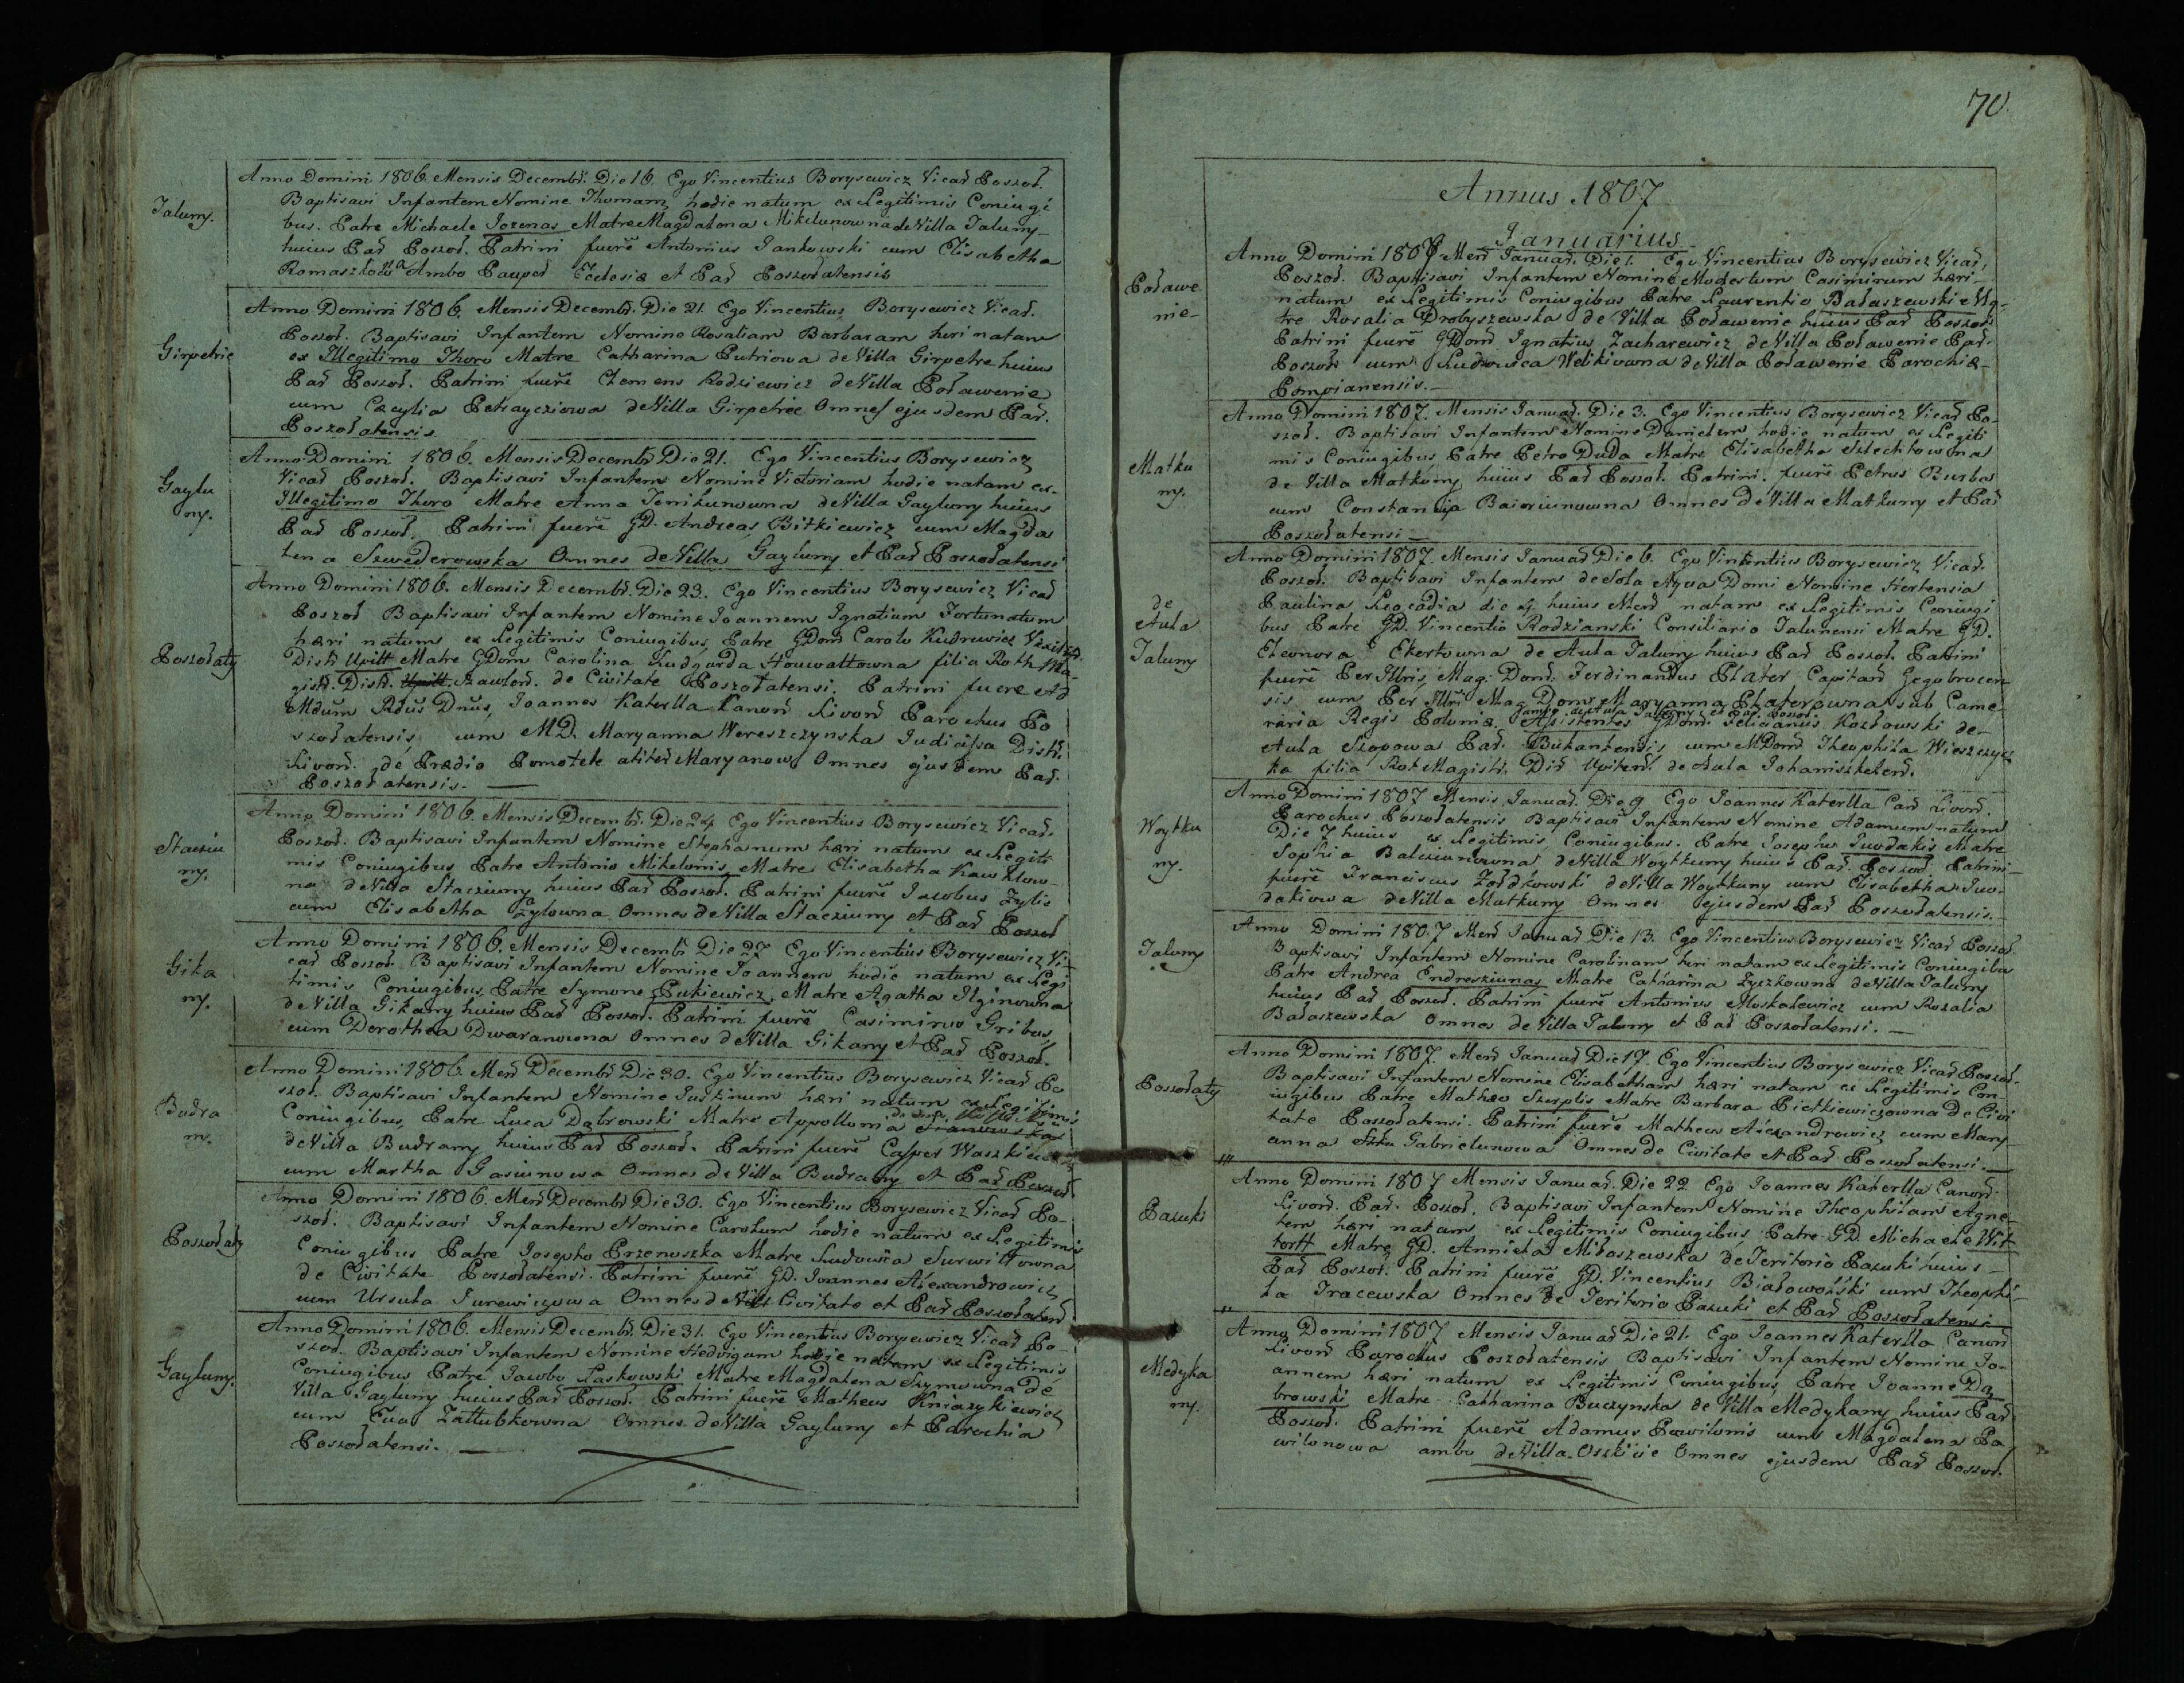 Taluny.
Anno Domini 1806. Mensis Decembr. Die 16. Ego Vincentius Borysewicz Vicar Poszoł.
Baptisavi Infantem Nomine Thomam hodie natum ex Legitimis Coniugi
bus. Patre Michaele Jozenas Matre Magdalena Mikelunowna de Villa Taluny
huius Par Poszoł. Patrini fuere Antonius Jankowski cum Elisabetha
Ambo Pauper Eclesiæ et Par Poszołatensis
Girpetrie
Anno Domini 1806. Mensis Decembr. Die 21. Ego Vincentius Borysewicz Vicar.
Poszoł. Baptisavi Infantem Nomine Rosaliam Barbaram heri natam
ex Illegitimo Thoro Matre Catharina Putriowa de Villa Girpetre huius
Par Poszoł. Patrini fuere Clemens Rodziewicz de Villa Poławenie
cum Cæcylia Petrayciowa de Villa Girpetrie Omnes ejusdem Par.
Poszołatensis
Gaylu
ny.
Anno Domini 1806. Mensis Decembr Die 21. Ego Vincentius Borysewicz
Vicar Poszoł. Baptisavi Infantem Nomine Victoriam hodie natam ex
Illegitimo Thoro Matre Anna Jenikunowna de Villa Gayluny huius
Par Poszoł. Patrini fuere GD. Andreas Bitkiewicz cum Magda
lena Szwederowska Omnes de Villa Gayluny et Par Poszołatensi
Poszołaty
Anno Domini 1806. Mensis Decembr. Die 23. Ego Vincentius Borysewicz Vicar
Poszoł Baptisavi Infantem Nomine Joannem Ignatium Fortunatum
hæri natum ex Legitimis Coniugibus Patre GDom Carolo Kudrewicz
Distr Upitt Matre GDom Carolina Ludgarda Houwaltowna filia Roth Ma-
gistr. Distr. Upitt. Szawlen. de Civitate Poszołatensi. Patrini fuere Ad
Mdum Rdus Dnus, Joannes Katerlla Kanon Livon Parochus Po
szołatensis cum MD. Maryanna Wereszczynska Judicissa Distr.
Livon. de Prædio Pomotele aliter Maryanow Omnes ejusdem Par.
Poszołatensis.
Stacziu
ny.
Anno Domini 1806. Mensis Decembr. Die 24 Ego Vincentius Borysewicz Vicar.
Poszoł. Baptisavi Infantem Nomine Stephanum hæri natum ex Legiti
mis Coniugibus Patre Antonio Mikelonis Matre Elisabetha Kawszlow-
na de Villa Stacziuny huius Par Poszoł. Patrini fuere Jacobus Zylis
cum Elisabetha Zylowna Omnes de Villa Stacziuny et Par Poszoł
Gika
ny.
Anno Domini 1806. Mensis Decembr Die 27 Ego Vincentius Borysewicz Vi-
car Poszoł Baptisavi Infantem Nomine Joannem hodie natum ex Legi
timis Coniugibus Patre Symone Putkiewicz, Matre Agatha Ilginowna
de Villa Gikany huius Par Poszoł. Patrini fuere Casimirus Gribas
cum Dorothea Dwaranowna Omnes de Villa Gikany et Par Poszoł.
Budra
ny.
Anno Domini 1806. Men Decembr Die 30. Ego Vincentius Borysewicz Vicar Po
szoł. Baptisavi Infantem Nomine Justinum hæri natum ex Legitimis
Coniugibus, Patre Luca Dąbrowski Matre Appollonia
de Villa Budrany huius Par Poszoł. Patrini fuere Casper
cum Martha Gasiunowa Omnes de Villa Budrany et Par Poszoł
Poszołaty
Anno Domini 1806. Men Decembr Die 30. Ego Vincentius Borysewicz Vicar Po-
szoł. Baptisavi Infantem Nomine Carolum hodie natum ex Legitimis
Coniugibus Patre Josepho Przenoszka Matre Ludovica Surwiłłowna
de Civitate Poszołatensi. Patrini fuere GD. Joannes Alexandrowicz
cum Ursula Jurewiczowa Omnes de Civitate et Par Poszołaten
Gayluny.
Anno Domini 1806. Mensis Decembr. Die 31. Ego Vincentius Borysewicz Vicar Po-
szoł. Baptisavi Infantem Nomine Hedvigam hodie natam ex Legitimis
Coniugibus Patre Jacobo Laskowski Matre Magdalena Szymowna de
Villa Gayluny huius Par Poszoł. Patrini fuere Matheus Kniazykiewicz
cum Eva Zattubkowna Omnes de Villa Gayluny et Parochia
Poszołatensi.
70.
Annus 1807
Januarius
Poławe
nie
Anno Domini 1807 Men Januar. Die 1. Ego Vincentius Borysewicz Vicar,
Poszoł. Baptisavi Infantem Nomine Modestum Casimirum hæri
natum ex Legitimis Coniugibus Patre Laurentio Bałaszewski Ma-
tre Rosalia Drobyszewska de Villa Poławenie huius Par Poszoł
Patrini fuere GDom Ignatius Zacharewicz de Villa Poławenie Par.
Poszoł cum Ludovica Welikiowna de Villa Poławenie Parochiæ
Pompianensis.
Matku
ny.
Anno Domini 1807. Mensis Januar. Die 3. Ego Vincentius Borysewicz Vicar Po-
szoł. Baptisavi Infantem Nomine Danielem hodie natum ex Legiti
mis Coniugibus Patre Petro Duda Matre Elisabetha Szlechtowna
de Villa Matkuny huius Par Poszoł. Patrini fuere Petrus Burba
cum Constancija Baioriunowna Omnes de Villa Matkuny et Par
Poszołatensi
de
Aula
Taluny
Anno Domini 1807. Mensis Januar Die 6. Ego Vincentius Borysewicz Vicar.
Poszoł. Baptisavi Infantem de Sola Aqua Domi Nomine Hortensia
Paulina Leocadia die 4 huius Men natam ex Legitimis Coniugi
bus Patre GD. Vincentio Rodzianski Consiliario Talunensi Matre GD.
Eleonora Ekertowna de Aula Taluny huius Par Poszoł. Patrini
fuere Per Illris Mag. Dom. Ferdinandus Plater Capitan Gegobrocen
sis cum Per Illri Mag Dom Maryanna Platerowna sub Came-
raria Regis Poloniæ, Asistentes GDom Felicianus Kozłowski de
Ambo de Aula Taluny et Par. Poszoł.
Aula Szopowa Par. Bukantensis cum MDom Theophila Wieszczyc
ka filia Rot Magistr. Dis Upiten. de Aula Johaniszkelen.
Woytku
ny.
Anno Domini 1807 Mensis Januar. Die 9 Ego Joannes Katerlla Can Livon.
Parochus Poszołatensis Baptisavi Infantem Nomine Adamum natum
Die 7 huius ex Legitimis Coniugibus. Patre Josepho Juodakis Matre
Sophia Balczunowna de Villa Woytkuny huius Par. Poszoł Patrini
fuere Franciscus Żołdkowski de Villa Woytkuny cum Elisabetha Juo-
dakiowa de Villa Matkuny Omnes ejusdem Par Poszołatensis.
Taluny
Anno Domini 1807 Men Januar Die 13. Ego Vincentius Borysewicz Vicar Poszoł
Baptisavi Infantem Nomine Carolinam heri natam ex Legitimis Coniugibus
Patre Andrea Endresziunas Matre Catharina Zyczkowna de Villa Taluny
huius Par Poszoł. Patrini fuere Antonius Moskalewicz cum Rozalia
Bałaszewska Omnes de Villa Taluny et Par Poszołatensi.
Poszołaty
Anno Domini 1807. Men Januar Die 17. Ego Vincentius Borysewicz Vicar Poszoł.
Baptisavi Infantem Nomine Elisabetham hæri natam ex Legitimis Con-
iugibus Patre Matheo Szerplis Matre Barbara Pietkiewiczowna de Civi
tate Poszołatensi. Patrini fuere Matheus Alexandrowicz cum Mary
anna Gabrielunowa Omnes de Civitate et Par Poszołatensi.
Pazuki
Anno Domini 1807 Mensis Januar. Die 22 Ego Joannes Katerlla Canon.
Livon. Par. Poszoł. Baptisavi Infantem Nomine Theophilam Agne-
tem hæri natam ex Legitimis Coniugibus Patre GD. Michaele Wit-
torff Matre GD. Anniela Miłoszewska de Teritorio Pazuki huius
Par Poszoł. Patrini fuere GD. Vincentius Białowolski cum Theophi-
la Tracewska Omnes de Teritorio Pazuki et Par Poszołatensis
Medyka
ny.
Anno Domini 1807 Mensis Januar Die 21. Ego Joannes Katerlla Canon
Livon Parochus Poszołatensis Baptisavi Infantem Nomine Jo-
annem hæri natum ex Legitimis Coniugibus Patre Joanne Dą
browski Matre Catharina Buczynska de Villa Medykany huius Par
Poszoł. Patrini fuere Adamus Powilonis cum Magdalena Po
wilonowa ambo de Villa Oszkicie Omnes ejusdem Par Poszoł.